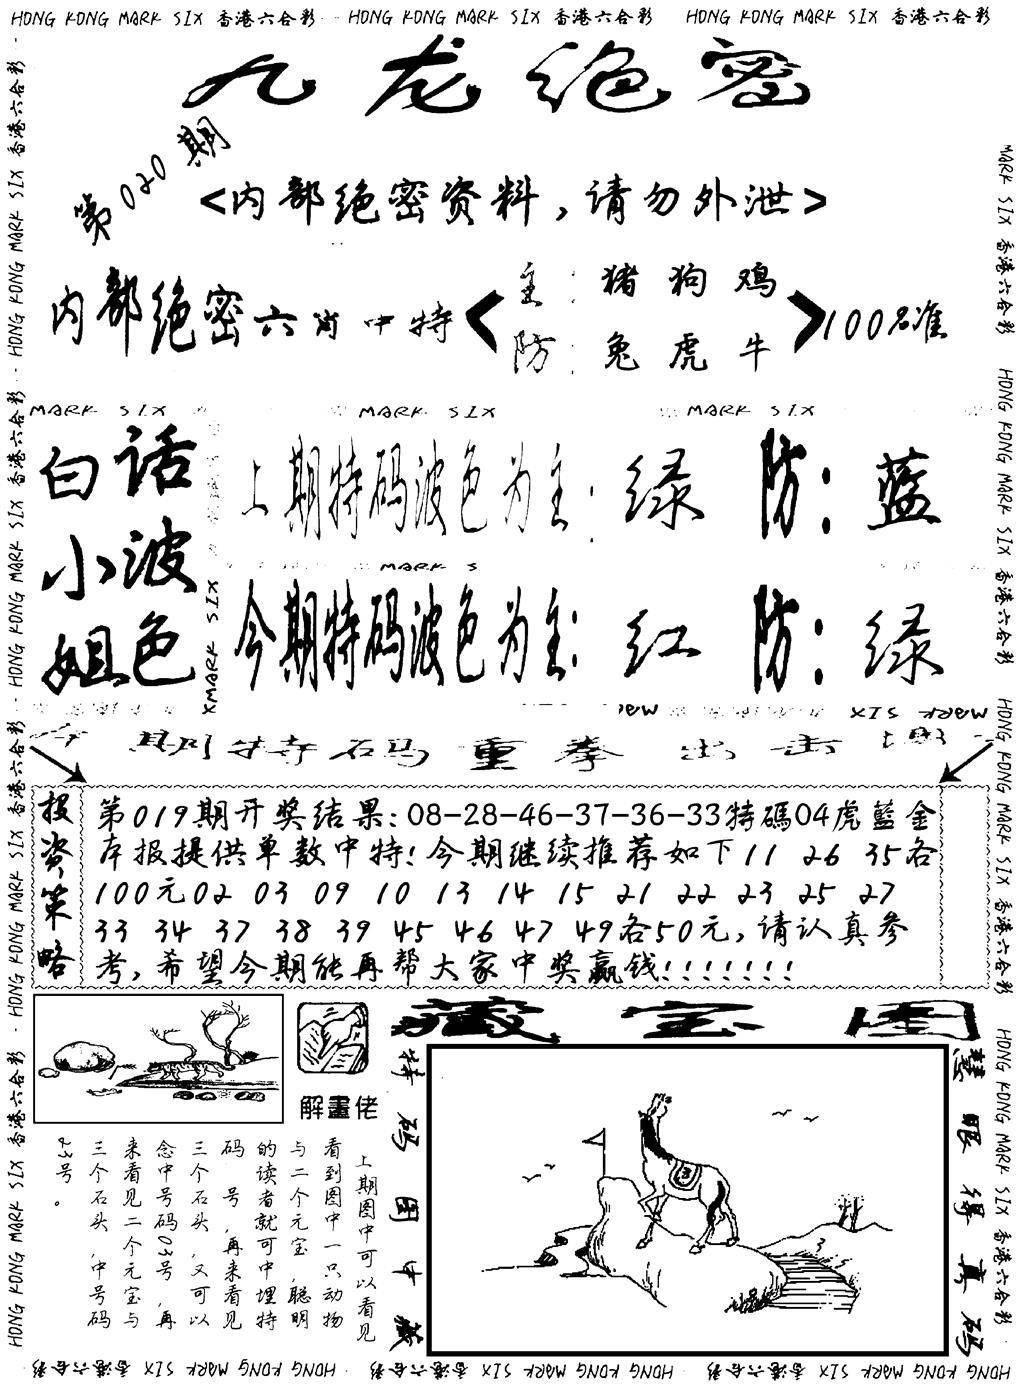 HONG KONG MARK SIX 香港六合彩 HONG KONG MARK SIX 香港六合彩 HONG KONG MARK SIX 香港六合彩
九龙绝密
第020期
<内部绝密资料,请勿外泄>
内部绝密六肖中特
主: 猪 狗 鸡
防: 兔 虎 牛
100%准
MARK SIX MARK SIX MARK SIX
白话
小波
姐色
上期特码波色为主: 绿 防: 蓝
MARK S
今期特码波色为主: 红 防: 绿
XMARK SIX
MARK SIX
今期特码重拳出击
投资策略
第019期开奖结果:08-28-46-37-36-33特碼04虎藍金
本报提供单数中特!今期继续推荐如下11 26 35各
100元02 03 09 10 13 14 15 21 22 23 25 27
33 34 37 38 39 45 46 47 49各50元,请认真参
考,希望今期能再帮大家中奖赢钱!!!!!!!
藏宝图
解畫佬
特码图中藏
慧眼得真码
上期图中可以看见
看到图中一只动物
与二个元宝,聪明
的读者就可中埋特
码 号,再来看见
三个石头,又可以
念中号码03号,再
来看见二个元宝与
三个石头,中号码
23号。
HONG KONG MARK SIX 香港六合彩 HONG KONG MARK SIX 香港六合彩 HONG KONG MARK SIX 香港六合彩 HONG KONG MARK SIX 香港六合彩
MARK SIX 香港六合彩 HONG KONG MARK SIX 香港六合彩 HONG KONG MARK SIX 香港六合彩 HONG KONG MARK SIX 香港六合彩
HONG KONG MARK SIX 香港六合彩 HONG KONG MARK SIX 香港六合彩 HONG KONG MARK SIX 香港六合彩